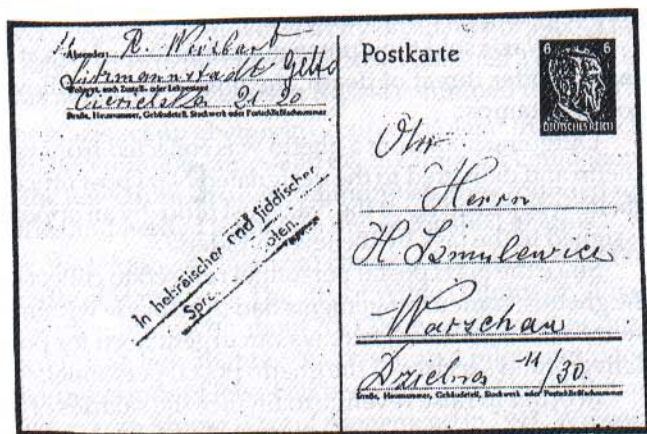 Absender: R. Weisbart
Litzmannstadt Getto
Wohnort, auch Zustell- oder Leitpostamt
21 20
Straße, Hausnummer, Gebäudeteil, Stockwerk oder Postschließfachnummer
In hebräischer und jiddischer
Postkarte
6 6
DEUTSCHES REICH
An
Herrn
H. Szmulewicz
Warschau
Dzielna 11/30.
Straße, Hausnummer, Gebäudeteil, Stockwerk oder Postschließfachnummer